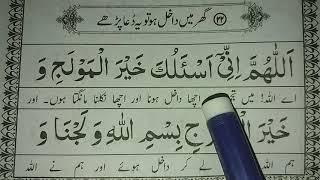 (۲۲) گھر میں داخل ہو تو یہ دعا پڑھے
اَللّٰهُمَّ اِنِّیْٓ اَسْئَلُكَ خَیْرَ الْمَوْلَجِ وَ
اے اللہ! میں تجھ اچھا داخل ہونا اور اچھا نکلنا مانگتا ہوں۔ اور
خَیْرَ الْ رَجِ بِسْمِ اللهِ وَ لَجْنَا وَ
ہم اللہ لے کر داخل ہوئے اور ہم نے اللہ